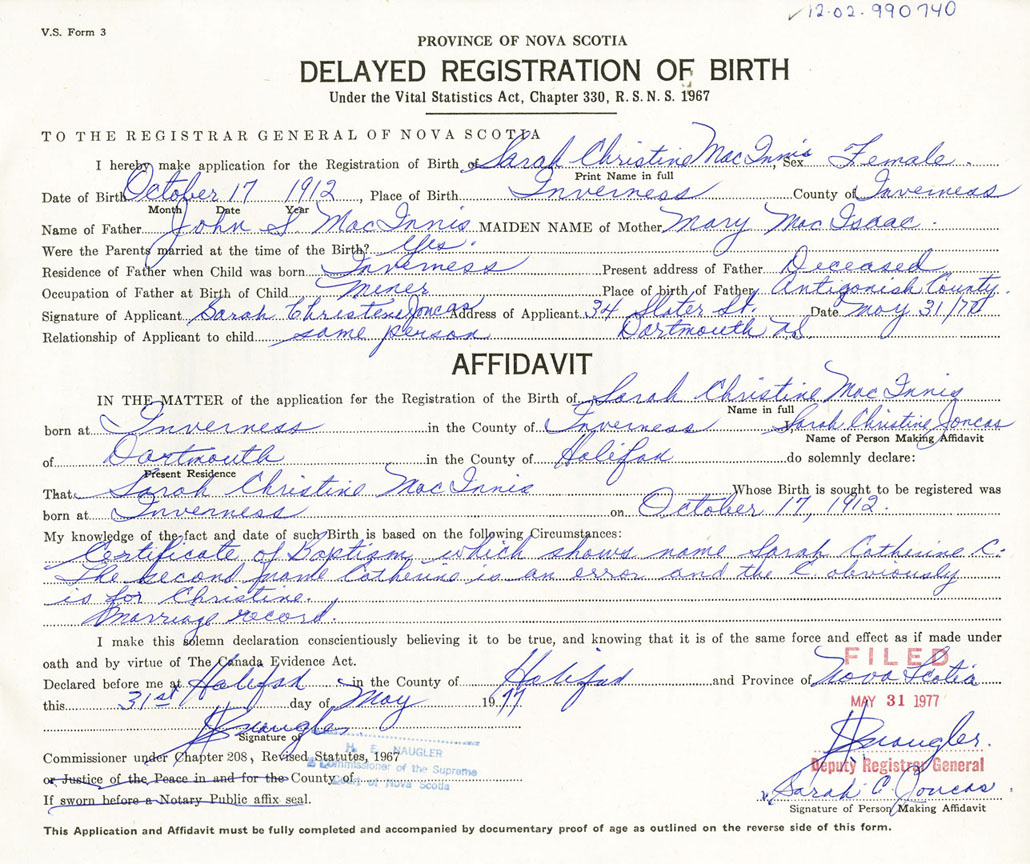 12-02-990740
V.S. Form 3
PROVINCE OF NOVA SCOTIA
DELAYED REGISTRATION OF BIRTH
Under the Vital Statistics Act, Chapter 330, R.S.N.S. 1967
TO THE REGISTRAR GENERAL OF NOVA SCOTIA
I hereby make application for the Registration of Birth of Sarah Christine MacInnis, Sex Female.
Print Name in full
Date of Birth October 17 1912, Place of Birth Inverness County of Inverness
Month Date Year
Name of Father John S MacInnis MAIDEN NAME of Mother Mary MacIsaac.
Were the Parents married at the time of the Birth? Yes.
Residence of Father when Child was born Inverness Present address of Father Deceased
Occupation of Father at Birth of Child Miner Place of birth of Father Antigonish County.
Signature of Applicant Sarah Christene Joncas Address of Applicant 34 Slater St. Date May 31/77
Relationship of Applicant to child same person Dartmouth N.S.
AFFIDAVIT
IN THE MATTER of the application for the Registration of the Birth of Sarah Christine MacInnis
Name in full
born at Inverness in the County of Inverness I, Sarah Christine Joncas
Name of Person Making Affidavit
of Dartmouth in the County of Halifax do solemnly declare:
Present Residence
That Sarah Christine MacInnis Whose Birth is sought to be registered was
born at Inverness on October 17, 1912.
My knowledge of the fact and date of such Birth is based on the following Circumstances:
Certificate of Baptism, which shows name Sarah Catherine C.
The second name Catherine is an error and the C obviously
is for Christine.
Marriage record.
I make this solemn declaration conscientiously believing it to be true, and knowing that it is of the same force and effect as if made under
oath and by virtue of The Canada Evidence Act.
FILED
Declared before me at Halifax in the County of Halifax and Province of Nova Scotia
this 31st day of May 1977
MAY 31 1977
HENaugler
HENaugler.
Signature of
H. E. NAUGLER
Commissioner under Chapter 208, Revised Statutes, 1967
A Commissioner of the Supreme
Deputy Registrar General
or Justice of the Peace in and for the County of
Court of Nova Scotia
Sarah C. Joncas
If sworn before a Notary Public affix seal.
Signature of Person Making Affidavit
This Application and Affidavit must be fully completed and accompanied by documentary proof of age as outlined on the reverse side of this form.